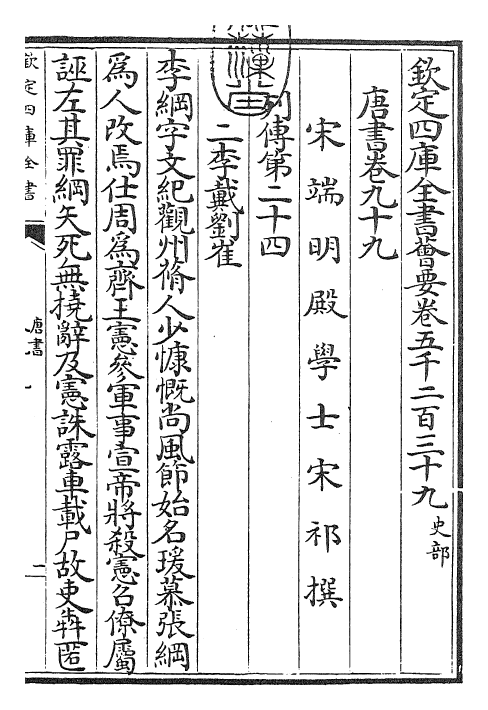 欽定四庫全書薈要卷五千二百三十九 史部
唐書卷九十九
宋端明殿學士宋祁撰
列傳第二十四
二李戴劉崔
李綱字文紀觀州蓨人少慷慨尚風節始名瑗慕張綱
為人改焉仕周為齊王憲參軍事宣帝將殺憲召僚屬
誣左其罪綱矢死無撓辭及憲誅露車載尸故吏犇匿
欽定四庫全書
唐書
一
二